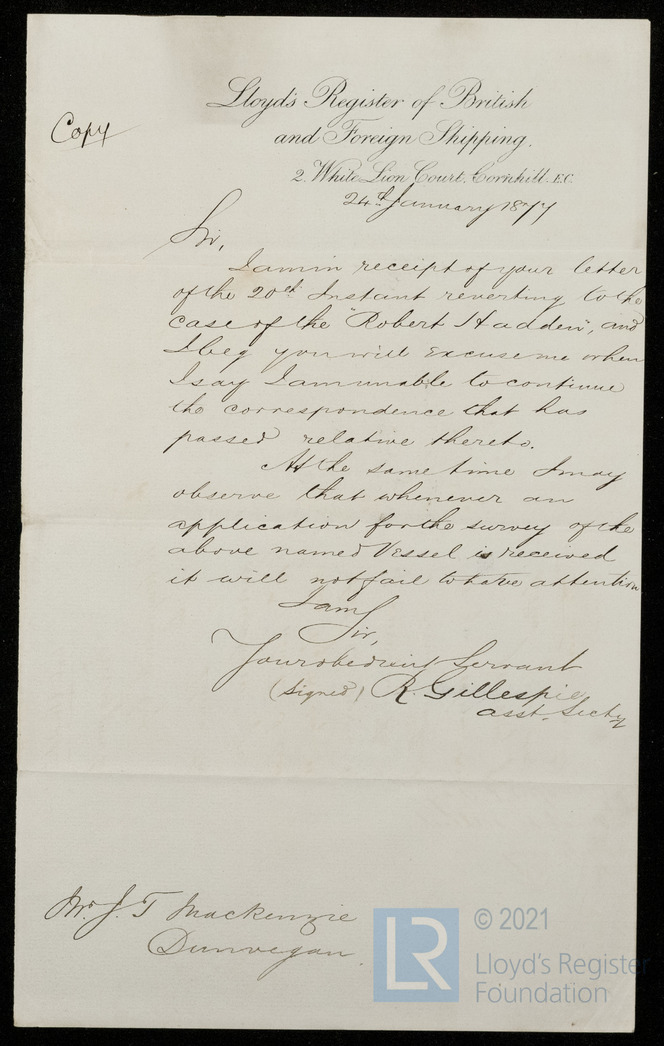 Lloyd's Register of British
and Foreign Shipping.
Copy
2, White Lion Court, Cornhill. E.C.
24th January 1877
Sir,
I am in receipt of your letter
of the 20th Instant reverting to the
case of the "Robert Hadden", and
I beg you will excuse me when
I say I am unable to continue
the correspondence that has
passed relative thereto.
At the same time I may
observe that whenever an
application for the survey of the
above named Vessel is received
it will not fail to have attention
I am
Sir,
Your obedient Servant
(signed) R. Gillespie
asst. Secty
Mr. J. T Mackenzie
Dunvegan.
© 2021
LR
Lloyd's Register
Foundation